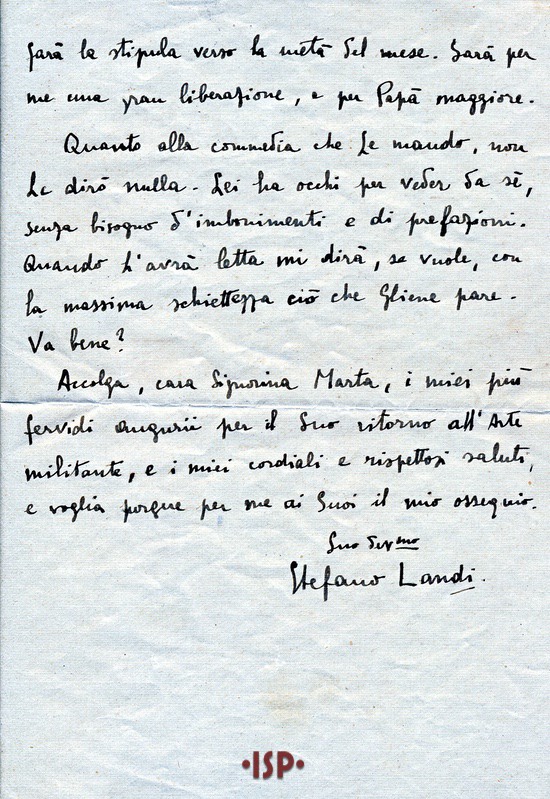 farà la stipula verso la metà del mese. Sarà per
me una gran liberazione, e per Papà maggiore.
Quanto alla commedia che Le mando, non
Le dirò nulla. Lei ha occhi per veder da sé,
senza bisogno d'imbonimenti e di prefazioni.
Quando L'avrà letta mi dirà, se vuole, con
la massima schiettezza ciò che Gliene pare.
Va bene?
Accolga, cara Signorina Marta, i miei più
fervidi augurii per il Suo ritorno all'Arte
militante, e i miei cordiali e rispettosi saluti,
e voglia porgere per me ai Suoi il mio ossequio.
Suo dev.mo
Stefano Landi.
•ISP•